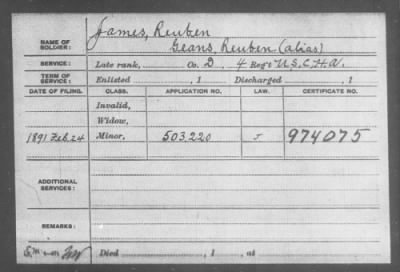 James, Reuben
NAME OF SOLDIER: Geans, Reuben (alias)
SERVICE: Late rank, Co. D, 4 Reg't U.S.C.H.A.
TERM OF SERVICE: Enlisted , 1 Discharged , 1
DATE OF FILING. CLASS. APPLICATION NO. LAW. CERTIFICATE NO.
Invalid,
Widow,
1891 Feb. 24 Minor, 503,220 974075
ADDITIONAL SERVICES:
REMARKS:
Died , 1 , at